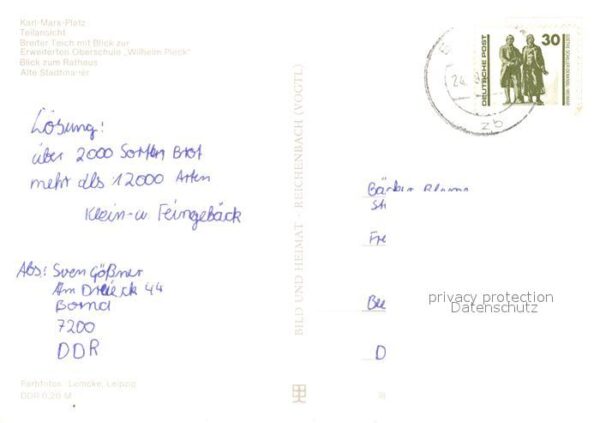 Karl-Marx-Platz
Teilansicht
Breiter Teich mit Blick zur
Erweiterten Oberschule „Wilhelm Pieck"
Blick zum Rathaus
Alte Stadtmauer
30
DEUTSCHE POST
24.
zb
Lösung:
über 2000 Sorten Brot
mehr als 12000 Arten
Klein- u. Feingebäck
BILD UND HEIMAT - REICHENBACH (VOGTL)
St
Fre
Bee
D
privacy protection
Datenschutz
Abs: Sven Gößner
Am Dreieck 44
Borna
7200
DDR
Farbfotos: Lemcke, Leipzig
DDR 0,20 M